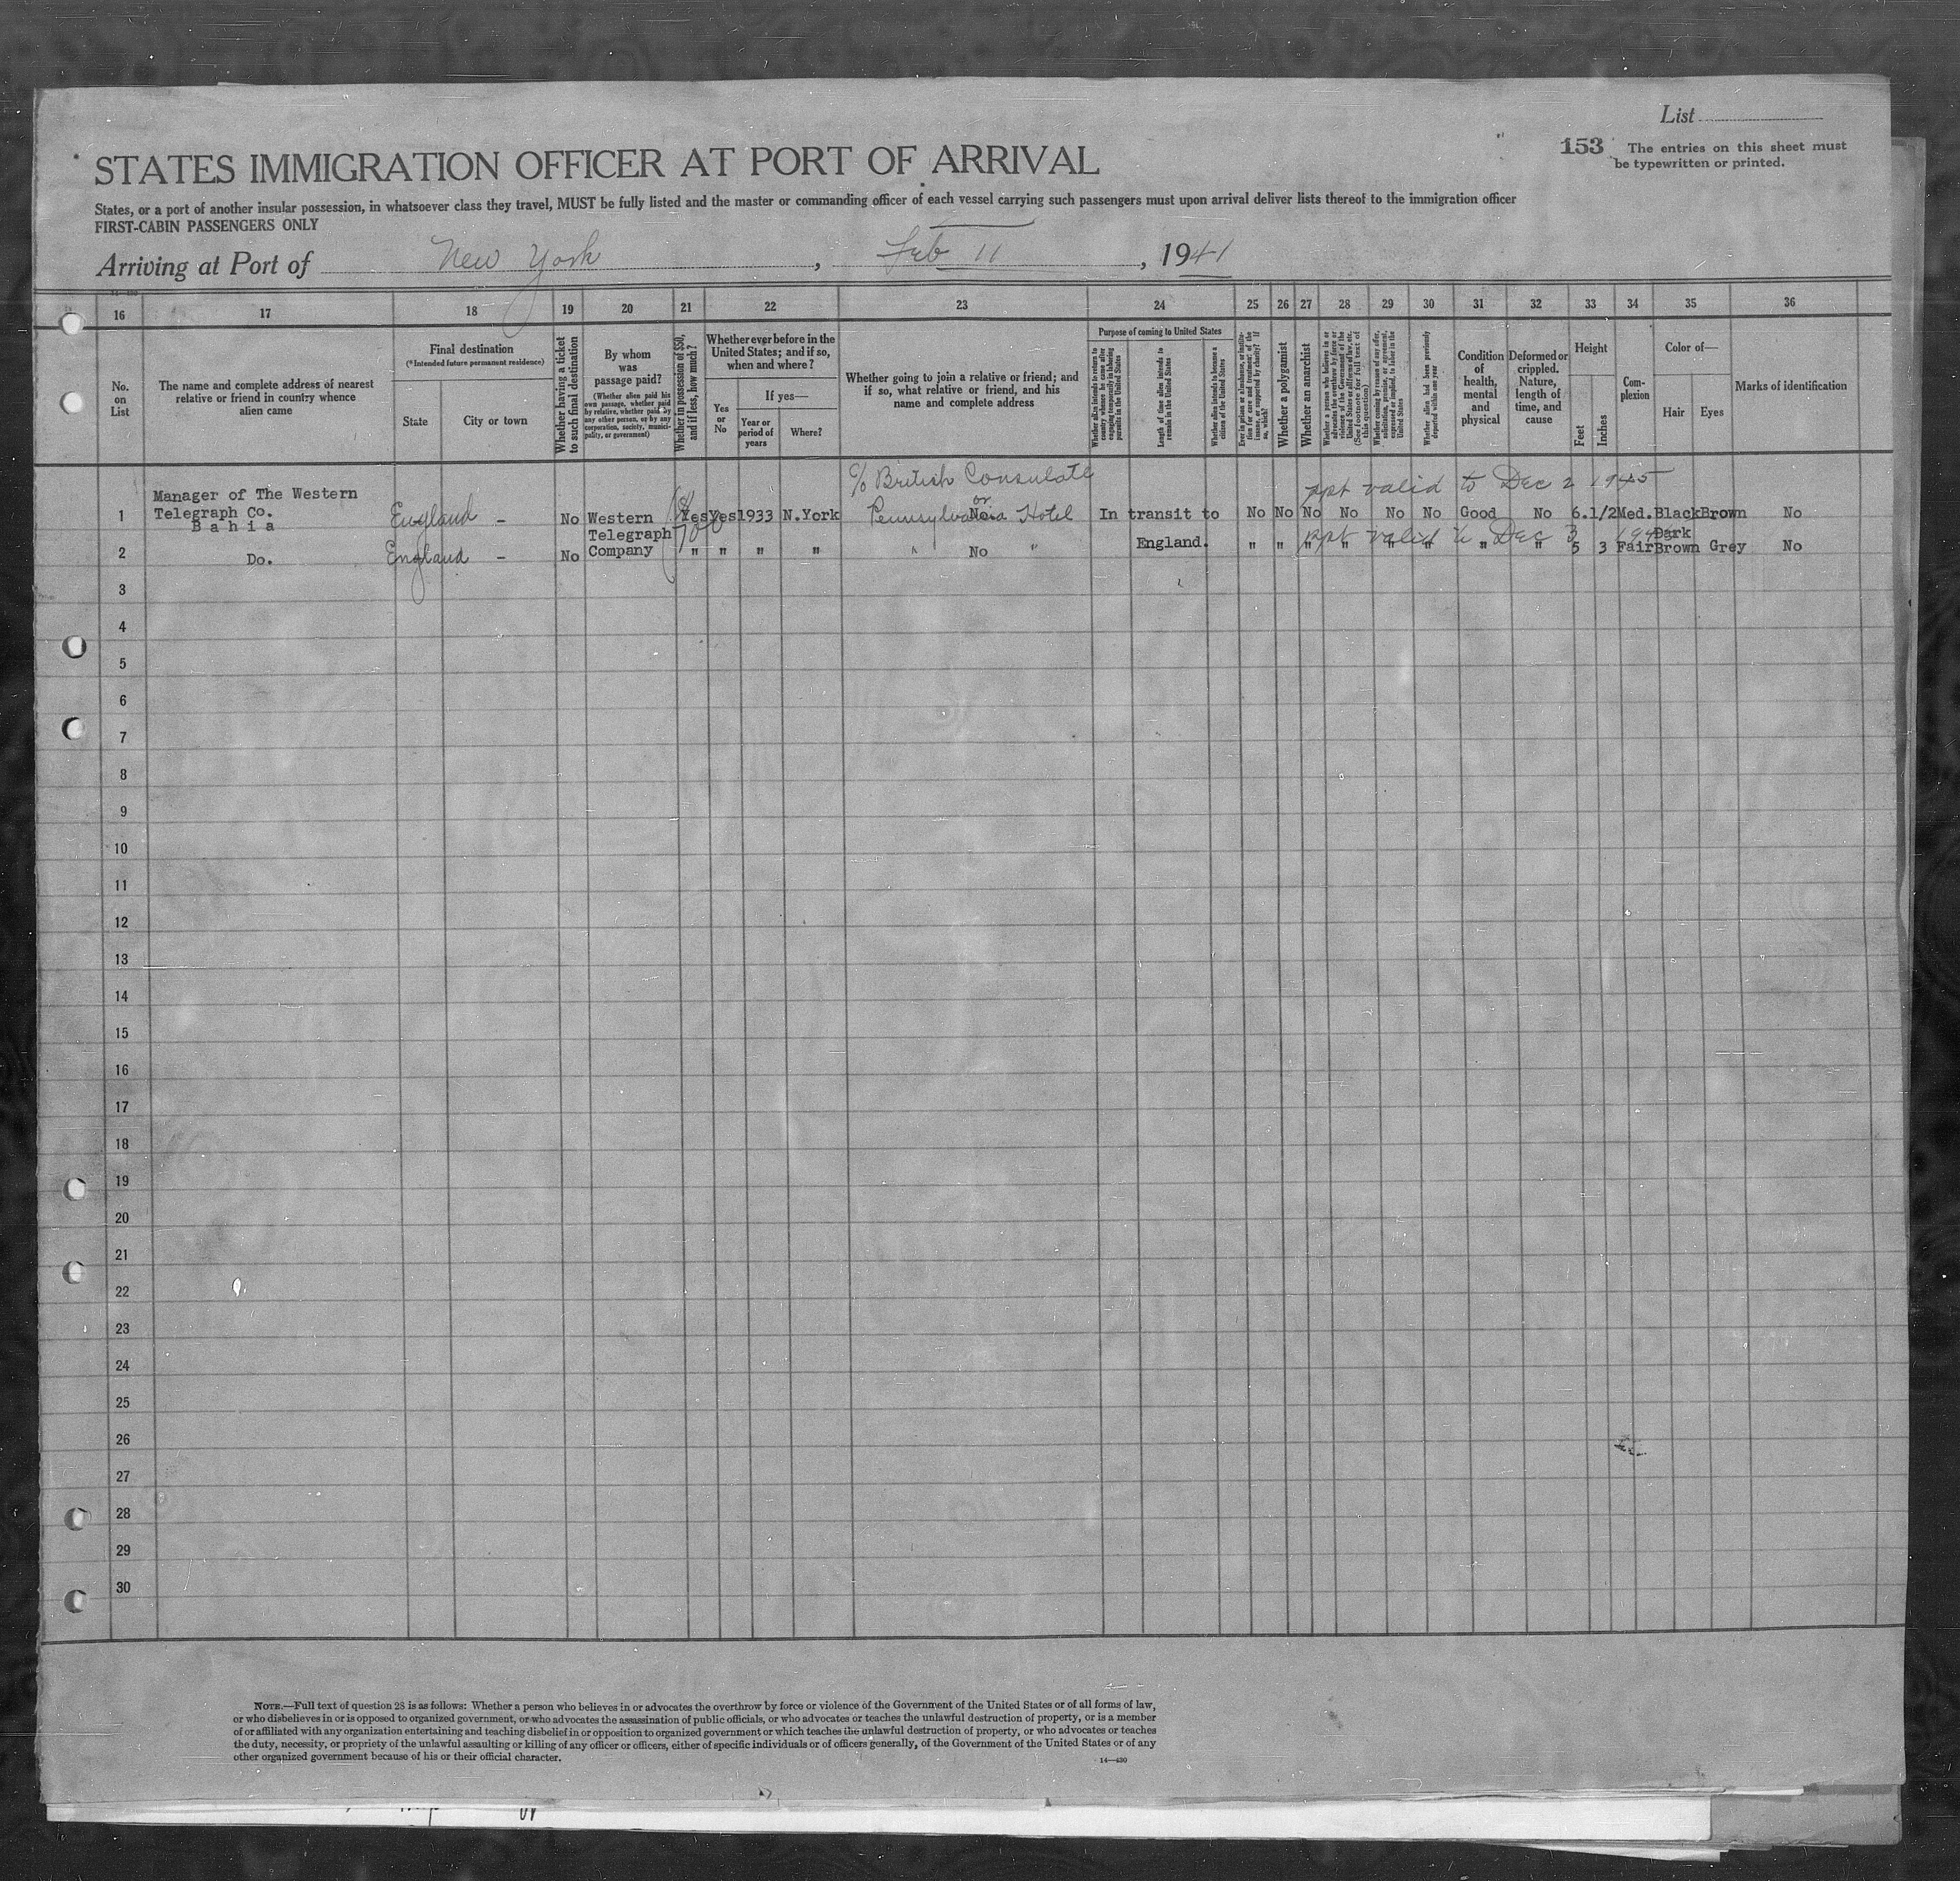 List
153 The entries on this sheet must
be typewritten or printed.
STATES IMMIGRATION OFFICER AT PORT OF ARRIVAL
States, or a port of another insular possession, in whatsoever class they travel, MUST be fully listed and the master or commanding officer of each vessel carrying such passengers must upon arrival deliver lists thereof to the immigration officer
FIRST-CABIN PASSENGERS ONLY
Arriving at Port of New York, Feb 11, 1941
16 17 18 19 20 21 22 23 24 25 26 27 28 29 30 31 32 33 34 35 36
No. on List
The name and complete address of nearest relative or friend in country whence alien came
Final destination
(*Intended future permanent residence)
State
City or town
Whether having a ticket to such final destination
By whom was passage paid?
(Whether alien paid his own passage, whether paid by relative, whether paid by any other person, or by any corporation, society, municipality, or government)
Whether in possession of $50, and if less, how much?
Whether ever before in the United States; and if so, when and where?
Yes or No
If yes—
Year or period of years
Where?
Whether going to join a relative or friend; and if so, what relative or friend, and his name and complete address
Purpose of coming to United States
Whether alien intends to return to country whence he came after engaging temporarily in laboring pursuits in the United States
Length of time alien intends to remain in the United States
Whether alien intends to become a citizen of the United States
Ever in prison or almshouse, or institution for care and treatment of the insane, or supported by charity? If so, which?
Whether a polygamist
Whether an anarchist
Whether a person who believes in or advocates the overthrow by force or violence of the Government of the United States or all forms of law, etc. (See footnote for full text of this question)
Whether coming by reason of any offer, solicitation, promise, or agreement, expressed or implied, to labor in the United States
Whether alien had been previously deported within one year
Condition of health, mental and physical
Deformed or crippled. Nature, length of time, and cause
Height
Feet
Inches
Complexion
Color of—
Hair
Eyes
Marks of identification
c/o British Consulate
ppt valid to Dec 2 1945
Manager of The Western
1 Telegraph Co. England - No Western Yes Yes 1933 N.York Pennsylvania Hotel In transit to No No No No No No Good No 6. 1/2 Med. Black Brown No
Bahia
Telegraph
ppt valid to Dec 3
Dark
2 Do. England - No Company " " " " No " England. " " " " " " " " 5 3 Fair Brown Grey No
3
4
5
6
7
8
9
10
11
12
13
14
15
16
17
18
19
20
21
22
23
24
25
26
27
28
29
30
NOTE.—Full text of question 28 is as follows: Whether a person who believes in or advocates the overthrow by force or violence of the Government of the United States or of all forms of law,
or who disbelieves in or is opposed to organized government, or who advocates the assassination of public officials, or who advocates or teaches the unlawful destruction of property, or is a member
of or affiliated with any organization entertaining and teaching disbelief in or opposition to organized government or which teaches the unlawful destruction of property, or who advocates or teaches
the duty, necessity, or propriety of the unlawful assaulting or killing of any officer or officers, either of specific individuals or of officers generally, of the Government of the United States or of any
other organized government because of his or their official character.
14—430